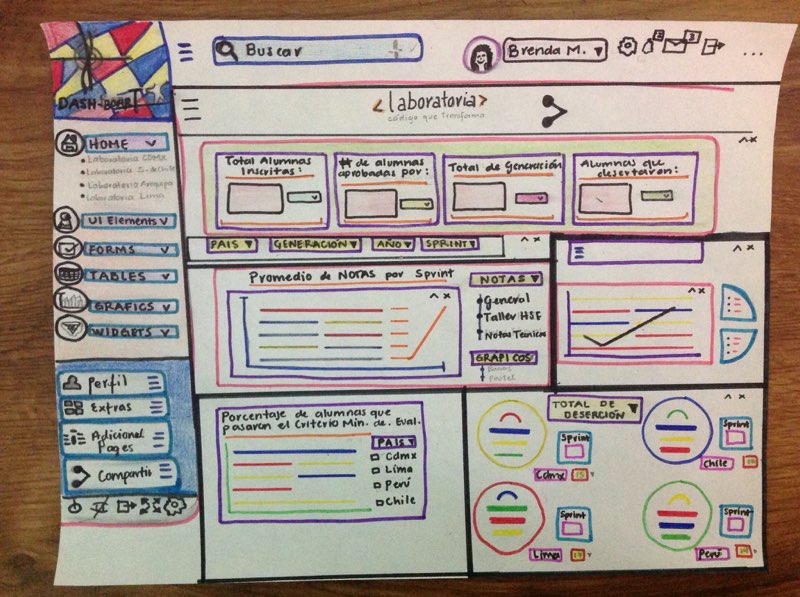 Buscar
Brenda M.
2
3
...
DASH-BOART
<Laboratoria>
código que transforma
HOME
Laboratoria CDMX
Laboratoria S. de Chile
Laboratoria Arequipa
Laboratoria Lima
UI Elements
FORMS
TABLES
GRAFICS
WIDGETS
Perfil
Extras
Adicional
Pages
Compartir
Total Alumnas
Inscritas:
# de alumnas
aprobadas por:
Total de Generación
Alumnas que
desertaron:
PAIS
GENERACIÓN
AÑO
SPRINT
Promedio de NOTAS por Sprint
NOTAS
General
Taller HSE
Notas Técnicas
GRAPICOS
Barras
Pastel
Porcentaje de alumnas que
pasaron el Criterio Min. de. Eval.
PAIS
Cdmx
Lima
Perú
Chile
TOTAL DE
DESERCIÓN
Sprint
Cdmx
15
Sprint
Chile
Sprint
Lima
Sprint
Perú